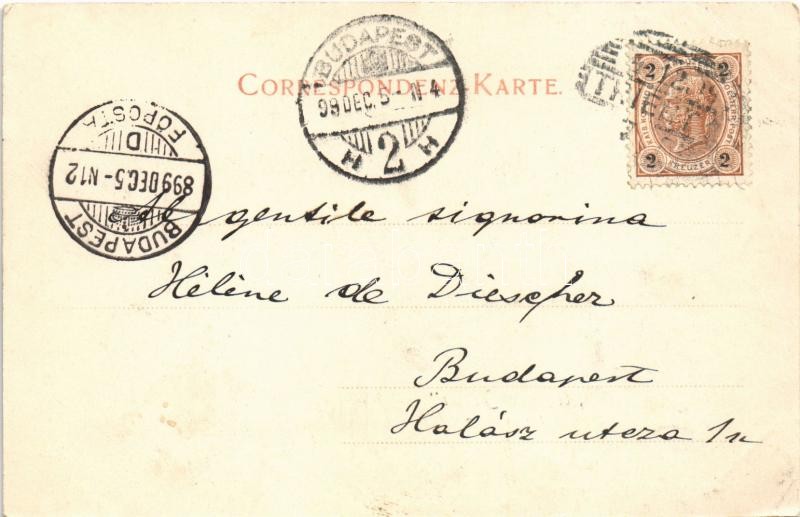 CORRESPONDENZ-KARTE.
BUDAPEST
99 DEC. 5
H 2 H
FŐPOSTA
D
899 DEC. 5 - N12
BUDAPEST
2 2
2 KREUZER 2
gentile signorina
Hélène de Diescher
Budapest
Halász utcza